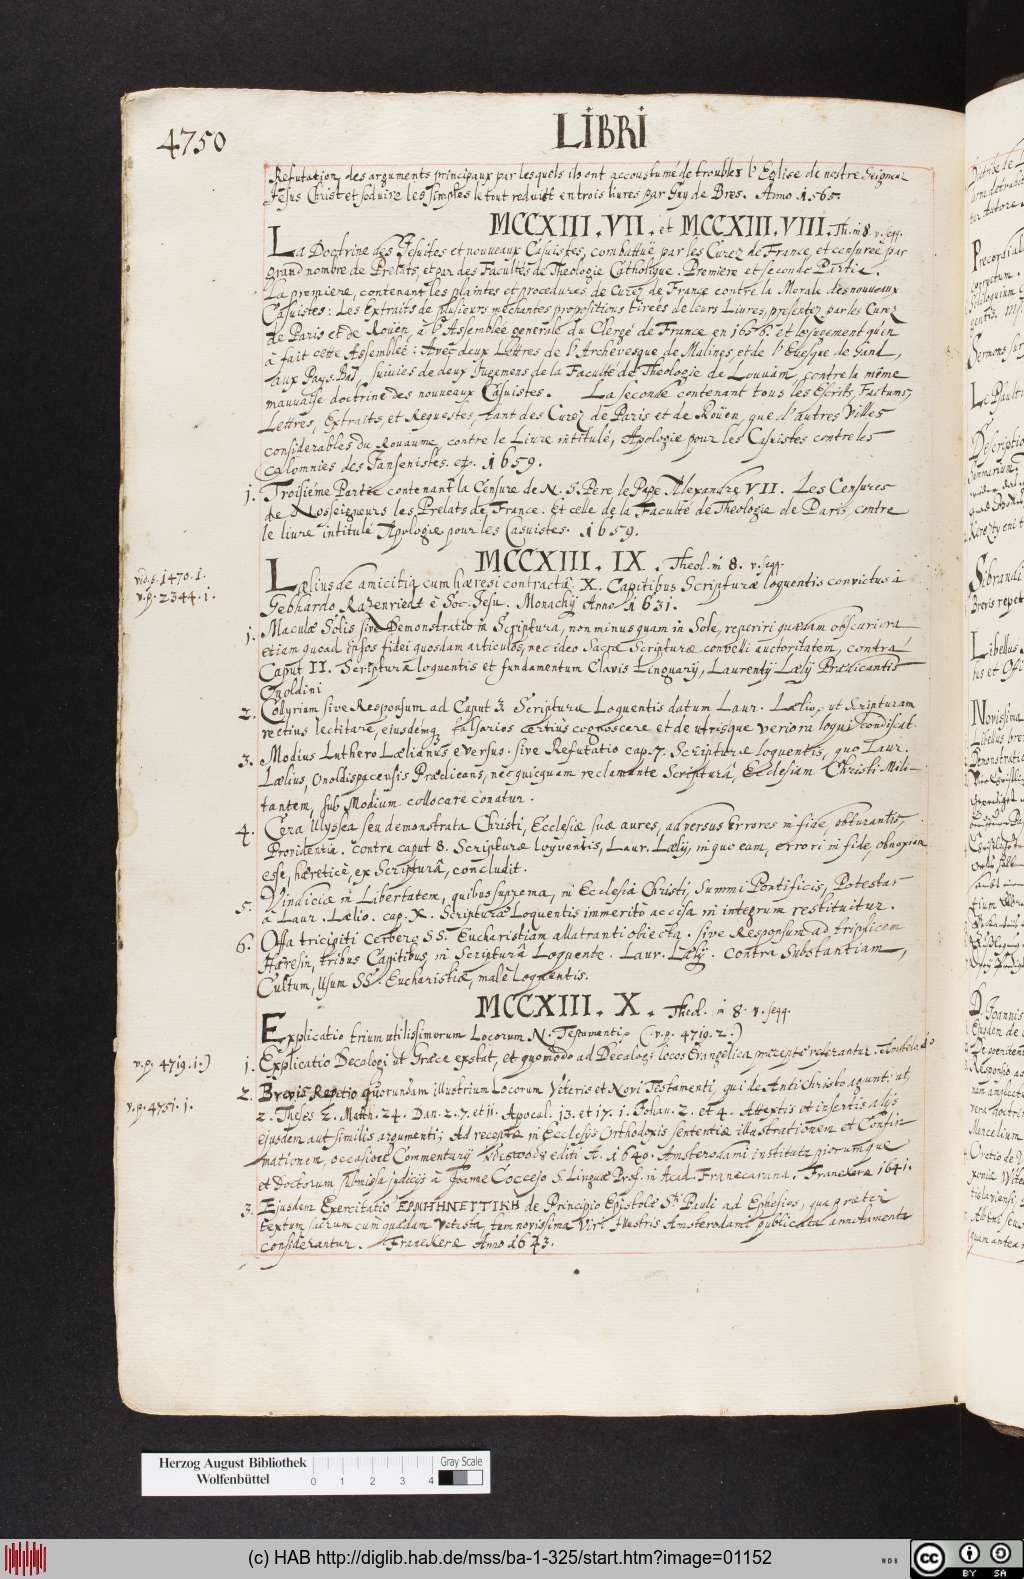 4750
LIBRI
Refutation des arguments principaux par lesquels ils ont accoustumé de troubler l'Eglise de nostre Seigneur
Jesus Christ et seduire les simples le tout reduitt en trois liures par Guy de Bres. Anno 1565.
MCCXIII. VII. et MCCXIII. VIII. Th. in 8. v. seqq.
La Doctrine des Jesuites et nouueaux Casuistes, combattuë par les Curez de France, et censuree par
grand nombre de Prelats, et par des Facultés de Theologie Catholique. Premiere et seconde Partie.
La premiere, contenant les plaintes et procedures de Curez de France contre la Morale des nouveaux
Casuistes: Les Extraits de plusieurs mechantes propositions tireés de leurs Liures, presentez par les Curez
de Paris et de Roüen, à l'Assemblée generale du Clergé de France en 1656. et le jugement qu'en
à fait cette Assemblée: Avec deux Lettres de l'Archevesque de Malines et de l'Evesque de Gand,
aux Pays Bas, suivies de deux Jugemens de la Faculté de Theologie de Louvain, contre la même
mauvaise doctrine des nouveaux Casuistes. La seconde contenant tous les Escrits, Factums,
Lettres, Extraits, et Requestes, tant des Curez de Paris et de Roüen, que d'autres Villes
considerables du Rouaume contre le Liure intitulé, Apologie pour les Casuistes contre les
calomnies des Jansenistes. etc. 1659.
1. Troisiéme Partie contenant la Censure de N. S. Pere le Pape Alexandre VII. Les Censures
de Nosseigneurs les Prelats de France. Et celle de la Faculté de Theologie de Paris, contre
le liure intitulé Apologie pour les Casuistes. 1659.
MCCXIII. IX. Theol. in 8. v. seqq.
vid. p. 1470. 1.
v. p. 2344. 1.
Lælius de amicitia cum hæresi contractâ X. Capitibus Scripturæ loquentis convictus à
Gebhardo Razenriedt è Soc. Jesu. Monachij Anno 1631.
1. Maculæ Solis sive Demonstratio in Scriptura, non minus quam in Sole, reperiri quædam obscuriora
etiam quoad ipsos fidei quosdam articulos, nec ideo Sacræ Scripturæ convelli auctoritatem, contra
Caput II. Scripturæ loquentis et fundamentum Clavis Linguarij, Laurentij Lælij Prædicantis
Onoldini
2. Collyrium sive Responsum ad Caput 3. Scripturæ Loquentis datum Laur. Lælio, ut Scripturam
rectius lectitare, ejusdémq falsarios certiùs cognoscere et de utrisque veriora loqui condiscat.
3. Modius Luthero Lælianus eversus. sive Refutatio cap. 7. Scripturæ loquentis, quo Laur.
Lælius, Onoldispacensis Prædicans, nec quicquam reclamante Scripturâ, Ecclesiam Christi Mili-
tantem, sub Modium collocare conatur.
4. Cera Ulyssea seu demonstrata Christi, Ecclesiæ suæ aures, adversus Errores in fide, obturantis,
Providentia. contra caput 8. Scripturæ loquentis, Laur. Lælij, in quo eam, errori in fide, obnoxiam
esse, hæreticè, ex Scripturâ, concludit.
5. Vindiciæ in Libertatem, quibus suprema, in Ecclesiâ Christi, Summi Pontificis, Potestas
à Laur. Lælio. cap. X. Scripturæ Loquentis immerito accisa in integrum restituitur.
6. Offa tricipiti Cerbero SS. Eucharistiam allatranti obiecta. sive Responsum ad triplicem
Hæresin, tribus Capitibus, in Scripturâ Loquente. Laur. Lælij. contra Substantiam,
Cultum, Usum SS. Eucharistiæ, malè Loquentis.
MCCXIII. X. Theol. in 8. v. seqq.
Explicatio trium utilissimorum Locorum N. Testamenti (v. p. 4719. 2.)
v. p. 4719. 1.)
1. Explicatio Decalogi ut Græce exstat, et quomodo ad Decalogi locos Evangelica præcepta referantur.
v. p. 4751. 1.
2. Brevis Repetitio quorundam illustrium Locorum Veteris et Novi Testamenti, qui de Antichristo agunt: ut,
2. Theses 2. Matth. 24. Dan. 2. 7. et 11. Apocal. 13. et 17. 1. Johan. 2. et 4. Attextis ut insertis alijs
ejusdem aut similis argumenti; Ad receptæ in Ecclesijs Orthodoxis sententiæ illustrationem et Confir-
mationem, occasione Commentarij editi A. 1640. Amsterodami instituta piorumque
et Doctorum submissa judicijs à Joanne Coccejo S. Linguæ Prof. in Acad. Franecarana. Franekeræ 1641.
3. Ejusdem Exercitatio ΕΡΜΗΝΕΥΤΙΚΗ de Principio Epistolæ S. Pauli ad Ephesios, qua præter
textum sacrum cum quædam vetusta, tum novissima Viri Illustris Amsterodami publicata annotamenta
considerantur. Franekeræ Anno 1643.
Herzog August Bibliothek
Wolfenbüttel
0 1 2 3 4
Gray Scale
(c) HAB http://diglib.hab.de/mss/ba-1-325/start.htm?image=01152
WDB
cc BY SA